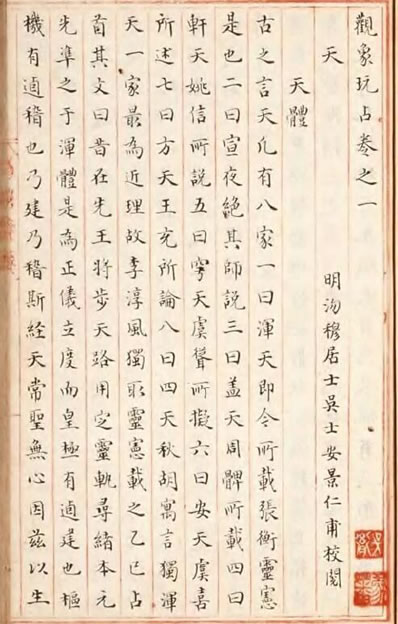 觀象玩占卷之一
明沕穆居士吳士安景仁甫校閱
天
天體
古之言天凡有八家一曰渾天即今所載張衡靈憲
是也二曰宣夜絕其師說三曰盖天周髀所載四曰
軒天姚信所說五曰穹天虞聳所擬六曰安天虞喜
所述七曰方天王充所論八曰四天秋胡寓言獨渾
天一家最為近理故李淳風獨取靈憲載之乙巳占
首其文曰昔在先王將步天路用定靈軌尋緒本元
先準之于渾體是為正儀立度而皇極有逌建也樞
機有逌稽也乃建乃稽斯経天常聖無心因兹以生